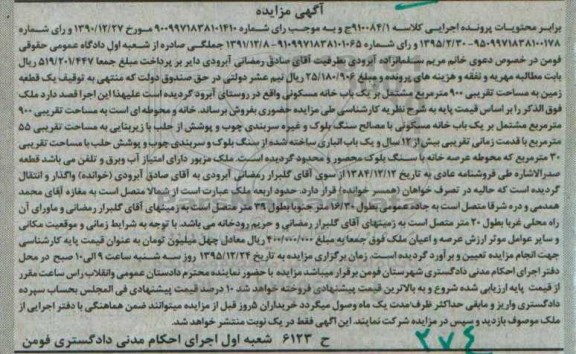 آگهی مزایده
برابر محتویات پرونده اجرایی کلاسه ۹۱۰۰۸۴/۱ج و به موجب رای شماره ۹۰۰۹۹۷۱۸۳۸۱۰۱۴۱۰ مورخ ۱۳۹۰/۱۲/۲۷ و رای شماره
۹۵۰۹۹۷۱۸۳۸۱۰۰۱۷۸-۱۳۹۵/۲/۳۰ و رای شماره ۹۱۰۹۹۷۱۸۳۸۱۰۱۰۶۵-۱۳۹۱/۱۲/۸ جملگی صادره از شعبه اول دادگاه عمومی حقوقی
فومن در خصوص دعوی خانم مریم سلمانزاده آبرودی بطرفیت آقای صادق رمضانی آبرودی دایر بر پرداخت مبلغ جمعا ۵۱۹/۲۰۱/۴۴۷ ریال
بابت مطالبه مهریه و نفقه و هزینه های پرونده و مبلغ ۲۵/۱۸۰/۹۰۶ ریال نیم عشر دولتی در حق صندوق دولت که منتهی به توقیف یک قطعه
زمین به مساحت تقریبی ۹۰۰ مترمربع مشتمل بر یک باب خانه مسکونی واقع در روستای آبرود گردیده است علیهذا این اجرا قصد دارد ملک
فوق الذکر را بر اساس قیمت پایه به شرح نظریه کارشناسی طی مزایده حضوری بفروش برساند. خانه و محوطه ای است به مساحت تقریبی ۹۰۰
مترمربع مشتمل بر یک باب خانه مسکونی با مصالح سنگ بلوک و غیره سربندی چوب و پوشش از حلب با زیربنایی به مساحت تقریبی ۵۵
مترمربع با قدمت زمانی تقریبی بیش از ۱۲ سال و یک باب انباری ساخته شده از سنگ بلوک و سربندی چوب و پوشش حلب با مساحت تقریبی
۳۰ مترمربع که محوطه عرصه خانه با سنگ بلوک محصور و محدود گردیده است. ملک مزبور دارای امتیاز آب وبرق و تلفن می باشد قطعه
صدرالاشاره طی فروشنامه عادی به تاریخ ۱۳۸۴/۱۲/۱۲ از سوی آقای گلبرار رمضانی آبرودی به آقای صادق آبرودی (خوانده) واگذار و انتقال
گردیده است که حالیه در تصرف خواهان (همسر خوانده) قرار دارد. حدود اربعه ملک عبارت است از شمالا متصل است به مغازه آقای محمد
همدمی و دره شرقا متصل است به جاده عمومی بطول ۱۶/۳۰ متر جنوبا بطول ۳۹ متر متصل است به زمینهای آقای گلبرار رمضانی و ماورای آن
راه محلی غربا بطول ۲۰ متر متصل است به زمینهای آقای گلبرار رمضانی و حریم رودخانه می باشد. با توجه به شرایط زمانی و موقعیت مکانی
و سایر عوامل موثر ارزش عرصه و اعیان ملک فوق جمعا به مبلغ ۴۰۰/۰۰۰/۰۰۰ ریال معادل چهل میلیون تومان به عنوان قیمت پایه کارشناسی
جهت انجام مزایده تعیین و برآورد گردیده است. زمان برگزاری مزایده به تاریخ ۱۳۹۵/۱۲/۲۴ روز سه شنبه ساعت ۹ الی ۱۰ صبح در محل
دفتر اجرای احکام مدنی دادگستری شهرستان فومن برقرار میباشد مزایده با حضور نماینده محترم دادستان عمومی وانقلاب راس ساعت مقرر
از قیمت پایه ارزیابی شده شروع و به بالاترین قیمت پیشنهادی فروخته خواهد شد. ۱۰ درصد قیمت پیشنهادی فی المجلس بحساب سپرده
دادگستری واریز و مابقی حداکثر ظرف مدت یک ماه وصول میگردد خریداران ۵ روز قبل از مزایده میتوانند ضمن هماهنگی با دفتر اجرایی از
ملک موصوف بازدید و سپس در مزایده شرکت نمایند. این آگهی فقط در یک نوبت منتشر خواهد شد.
ح ۶۱۲۳ شعبه اول اجرای احکام مدنی دادگستری فومن
۲۷۴